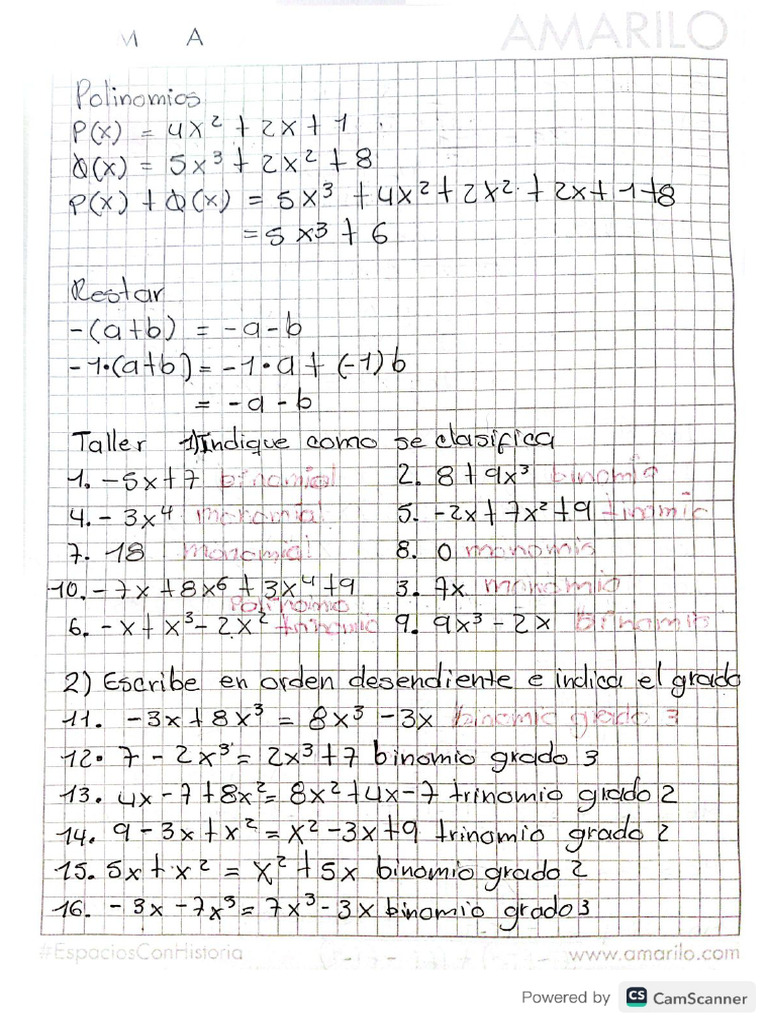 M A
AMARILO
Polinomios
P(x) = 4x² + 2x + 1
Q(x) = 5x³ + 2x² + 8
P(x) + Q(x) = 5x³ + 4x² + 2x² + 2x + 1 + 8
= 5x³ + 6
Restar
-(a+b) = -a-b
-1•(a+b) = -1•a + (-1)b
= -a-b
Taller 1) Indique como se clasifica
1. -5x+7 binomial 2. 8+9x³ binomio
4. -3x⁴ monomial 5. -2x+7x²+9 tinomio
7. 18 monomial 8. 0 monomio
10. -7x+8x⁶+3x⁴+9 3. 7x monomio
Polinomio
6. -x+x³-2x² trinomio 9. 9x³-2x binomio
2) Escribe en orden desendiente e indica el grado
11. -3x+8x³ = 8x³-3x binomio grado 3
12. 7-2x³ = 2x³+7 binomio grado 3
13. 4x-7+8x² = 8x²+4x-7 trinomio grado 2
14. 9-3x+x² = x²-3x+9 trinomio grado 2
15. 5x+x² = x²+5x binomio grado 2
16. -3x-7x³ = 7x³-3x binomio grado 3
#EspaciosConHistoria www.amarilo.com
Powered by CS CamScanner